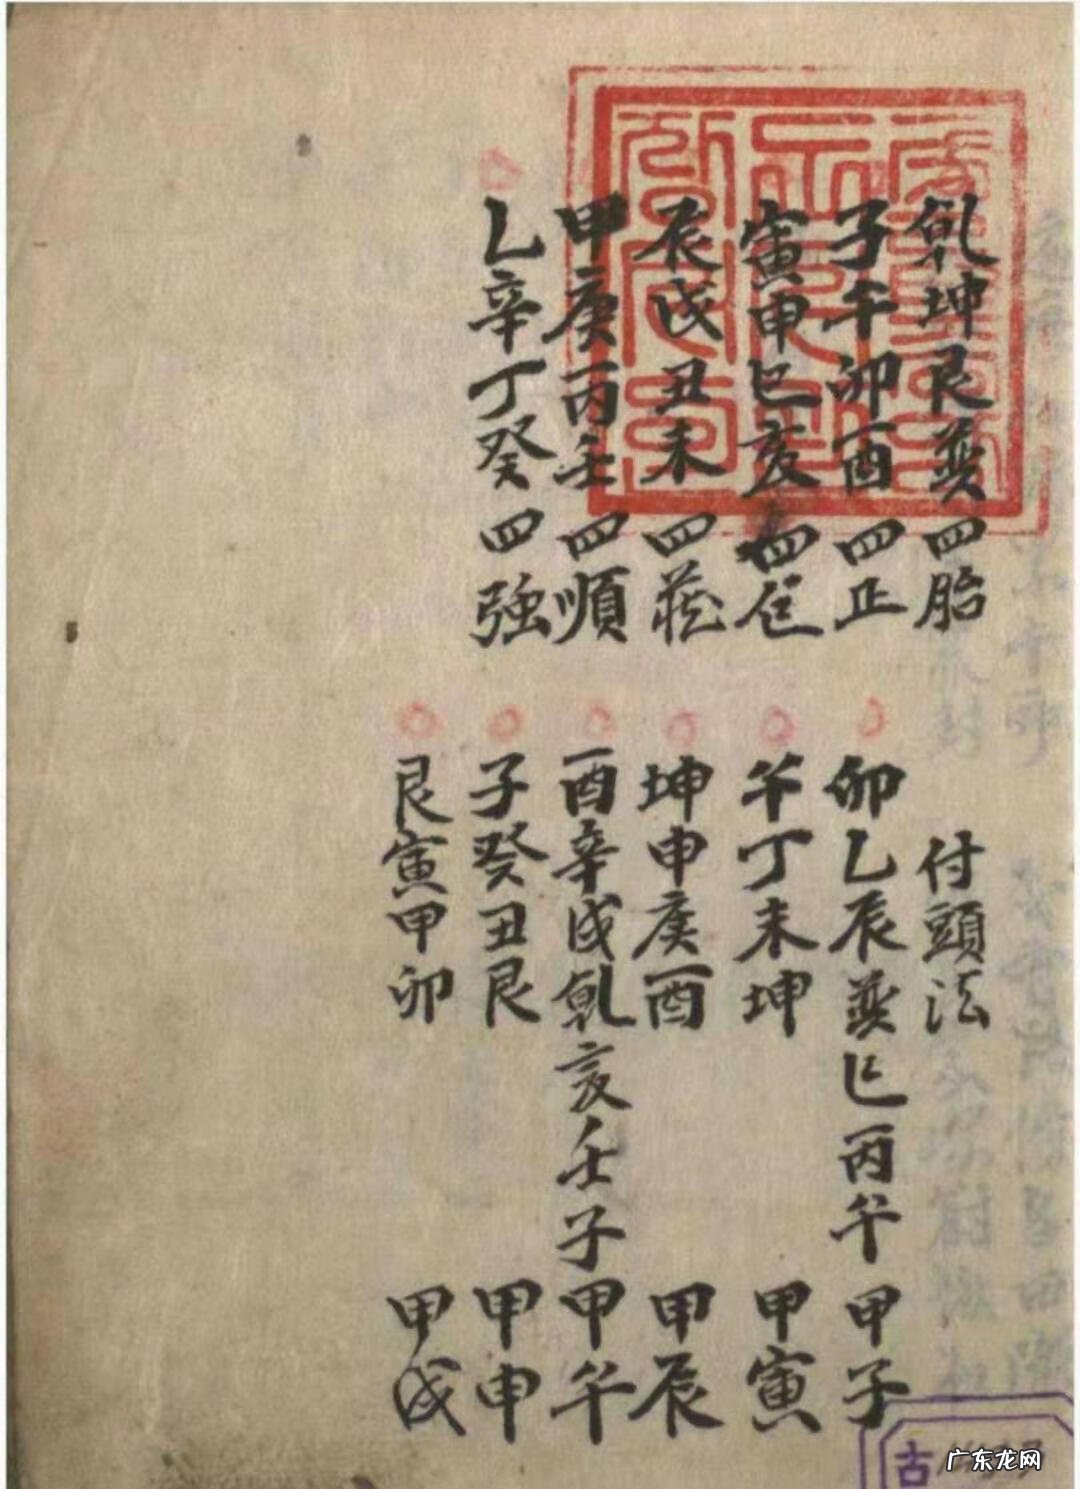 乾坤艮巽四胎
子午卯酉四正
寅申巳亥四
辰戌丑未四藏
甲庚丙壬四順
乙辛丁癸四強
付頭法
卯乙辰巽巳丙午 甲子
午丁未坤 甲寅
坤申庚酉 甲辰
酉辛戌乾亥壬子 甲午
子癸丑艮 甲申
艮寅甲卯 甲戌
古
广东龙网